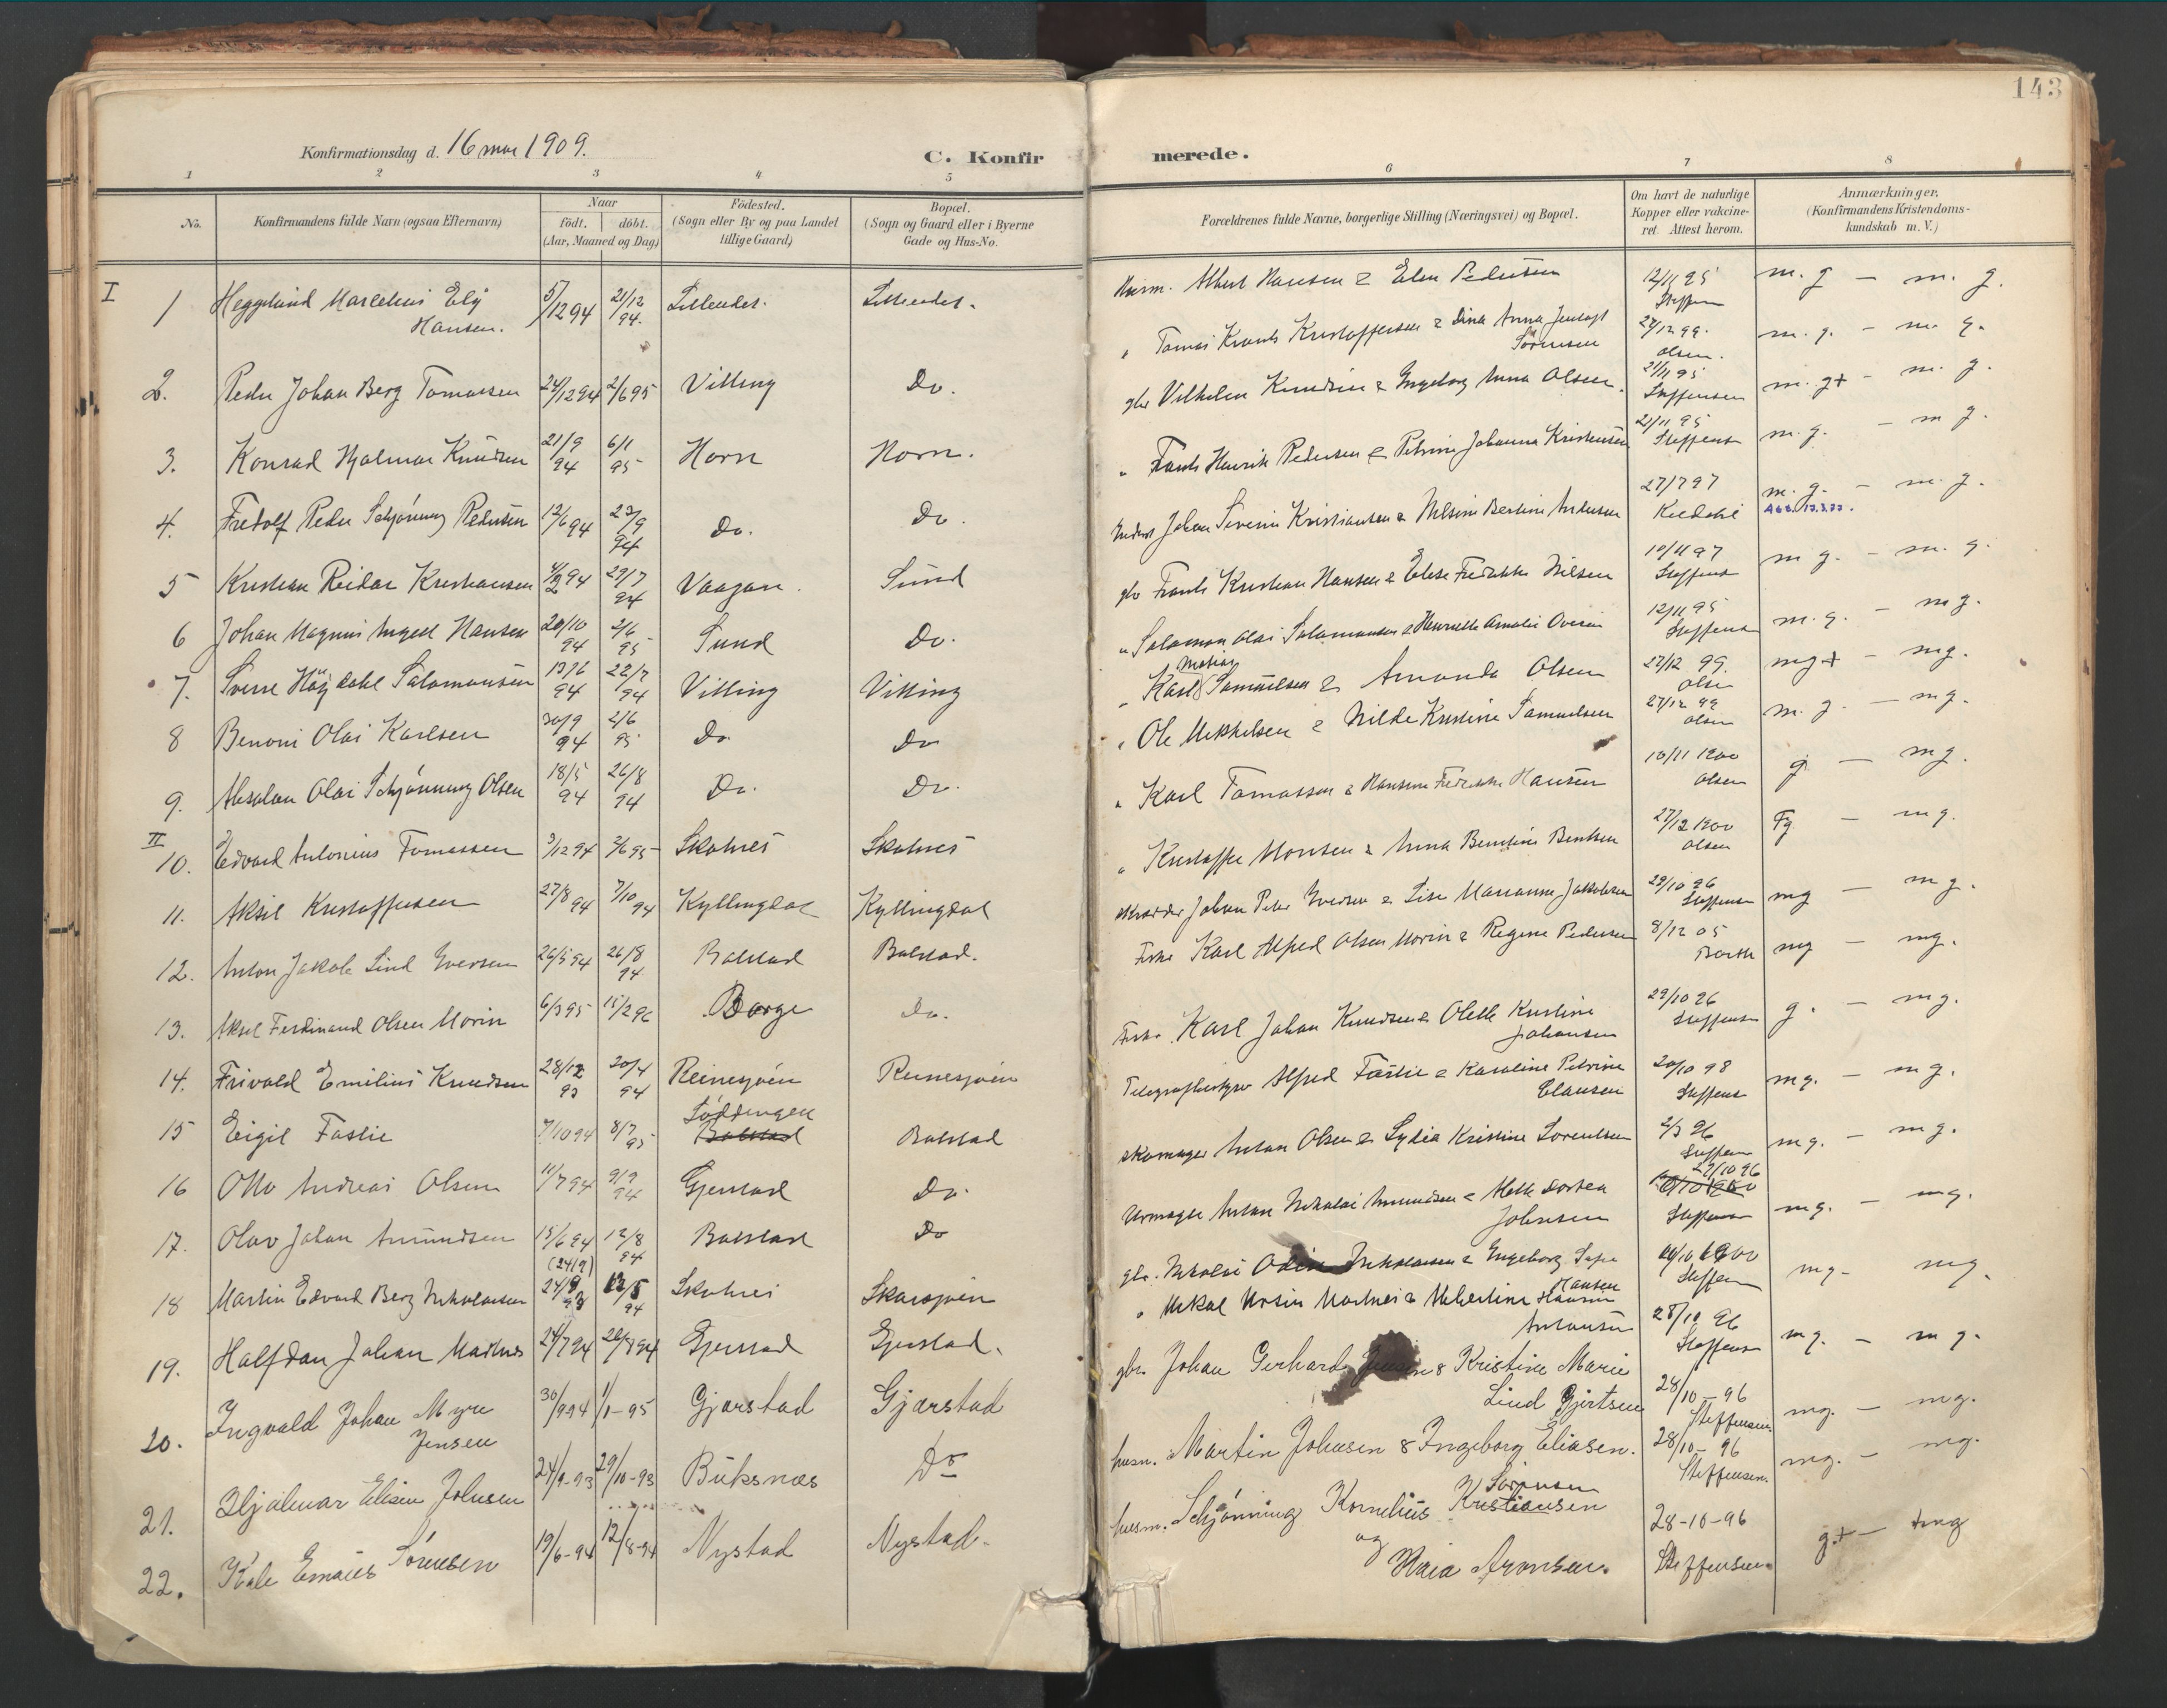 143
Konfirmationsdag d. 16 mai 1909.
C. Konfirmerede.
1 2 3 4 5 6 7 8
No.
Konfirmandens fulde Navn (ogsaa Efternavn)
Naar
födt. döbt.
(Aar, Maaned og Dag)
Födested.
(Sogn eller By og paa Landet
tillige Gaard)
Bopæl.
(Sogn og Gaard eller i Byerne
Gade og Hus-No.
Forældrenes fulde Navne, borgerlige Stilling (Næringsvei) og Bopæl.
Om havt de naturlige
Kopper eller vakcine-
ret. Attest herom.
Anmærkninger.
(Konfirmandens Kristendoms-
kundskab m. V.)
I
1 Heggelund Marcelius Hansen. 5/12 94 21/12 94. Albert Hansen & Elen Pedersen 12/11 95 m. g - m. g.
2. Peder Johan Berg Tomassen 24/12 94 2/6 95 Vitting Do. Tomas Krants Kristoffersen & Dina Anna Sörensen 27/12 99. Olsen. m. g. - m g.
3. Konrad Hjalmar Knudsen 21/9 94 6/1 95 Horn Horn. gbr Vilhelm Knudsen & Ingeborg Anna Olsen. 21/11 95 Steffensen m. g+ - m. g.
4. Fredolf Peder Schjönning Pedersen 12/6 94 23/9 94 Do. Do. " Frants Henrik Pedersen & Petrine Johanna Kristensen 21/11 95 Steffens m. g. - m g.
5 Kristian Reidar Kristiansen 29/7 94 Vaagan. Sund Johan Severin Kristiansen & Nilsine Bertine Andersen 27/7 97 m. g. - m. g.
6 Johan Magnus Hansen 20/10 94 2/6 95 Sund Do. gbr Frants Kristian Hansen & Elise Fredrikke Nilsen 10/11 97 Steffens m g. - m. g.
7. Sverre Höydahl Salamonsen 13/6 94 22/7 94 Vitting Vitting " Salamon Olai Salamonsen & Henriette Amalie 12/11 95 Steffens m. g. - m g.
8 Benoni Olai Karlsen 30/9 94 2/6 95 Do. Do " Karl Matias Samuelsen & Amanda Olsen 27/12 99. Olsen mg+ - mg.
9. Absalon Olai Schjönning Olsen 18/5 94 26/8 94 Do. Do. " Ole Mikkelsen & Hilde Kristine Samuelsen 27/12 99 Olsen m. g. - m g.
II
10. Edvard Antonius Tomassen 3/12 94 2/6 95 Skotnes Skotnes " Karl Tomassen & Hansine Fredrikke Hansen 10/11 1900 Olsen g - m g.
11. Aksel Kristoffersen 27/8 94 7/10 94 Kyllingdal Kyllingdal " Kristoffer Monsen & Anna Bentsen 27/12 1900 Olsen Tg - m g.
12. Anton Jakob Lind Iversen 26/5 94 26/8 94 Balstad Balstad. Skrædder Johan Peter Iversen & Lise Marianne Jakobsen 29/10 96 Steffens mg - m g.
13. Aksel Ferdinand Olsen Morin 6/3 95 15/2 96 Borge Do. Fisker Karl Alfred Olsen Morin & Regine Pedersen 8/12 05 Barth mg - mg.
14. Frivald Emilius Knudsen 28/12 93 20/4 94 Reinesjöen Reinesjöen Fisker Karl Johan Knudsen & Olette Kristine Johansen 29/10 96 Steffens g. - mg.
15 Eigil Fastie 7/10 94 8/7 95 Lödingen Balstad Balstad Telegrafbestyrer Alfred Fastie & Karoline Petrine Clausen 20/10 98 Steffens mg. - mg.
16 Otto Andreas Olsen 11/7 94 9/9 94 Gjerstad Do. Skomager Anton Olsen & Lydia Kristine Lorentsen 2/3 96 Steffens mg. - mg.
17. Olav Johan Amundsen 15/6 94 12/8 94 Balstad Do Urmager Anton Nikolai Amundsen & Mette Dortea Johnsen 29/10 96 Steffens mg. - mg.
18 Martin Edvard Berg Nikolaisen (24/9) 24/9 93 94 Skotnes Skarsjöen gbr. Nikolai Odin Nikolaisen & Ingeborg Hansen 1900 Steffens mg- mg.
19. Halfdan Johan Martnes 24/7 94 26/8 94 Gjerstad Gjerstad. " Mikal Ursin Martnes & Albertine Antonsen 28/10 96 Steffens mg. - m g.
20. Ingvald Johan Myre Jensen 30/9 94 1/1-95 Gjærstad Gjærstad gbr. Johan Gerhard Jensen & Kristine Marie Lind Gjertsen 28/10-96 Steffensen mg. - mg.
21. Hjalmar Elisen Johnsen 24/9-93 29/10-93 Buksnæs Do husm. Martin Johnsen & Ingeborg Eliasen. 28/10-96 Steffensen. mg. - mg.
22. Kale Emaus Sörensen 19/6-94 12/8-94 Nystad Nystad. husm. Schjönning Kornelius Kristiansen Sörensen og Maia Aronsen. 28-10-96 Steffensen. g+ - mg